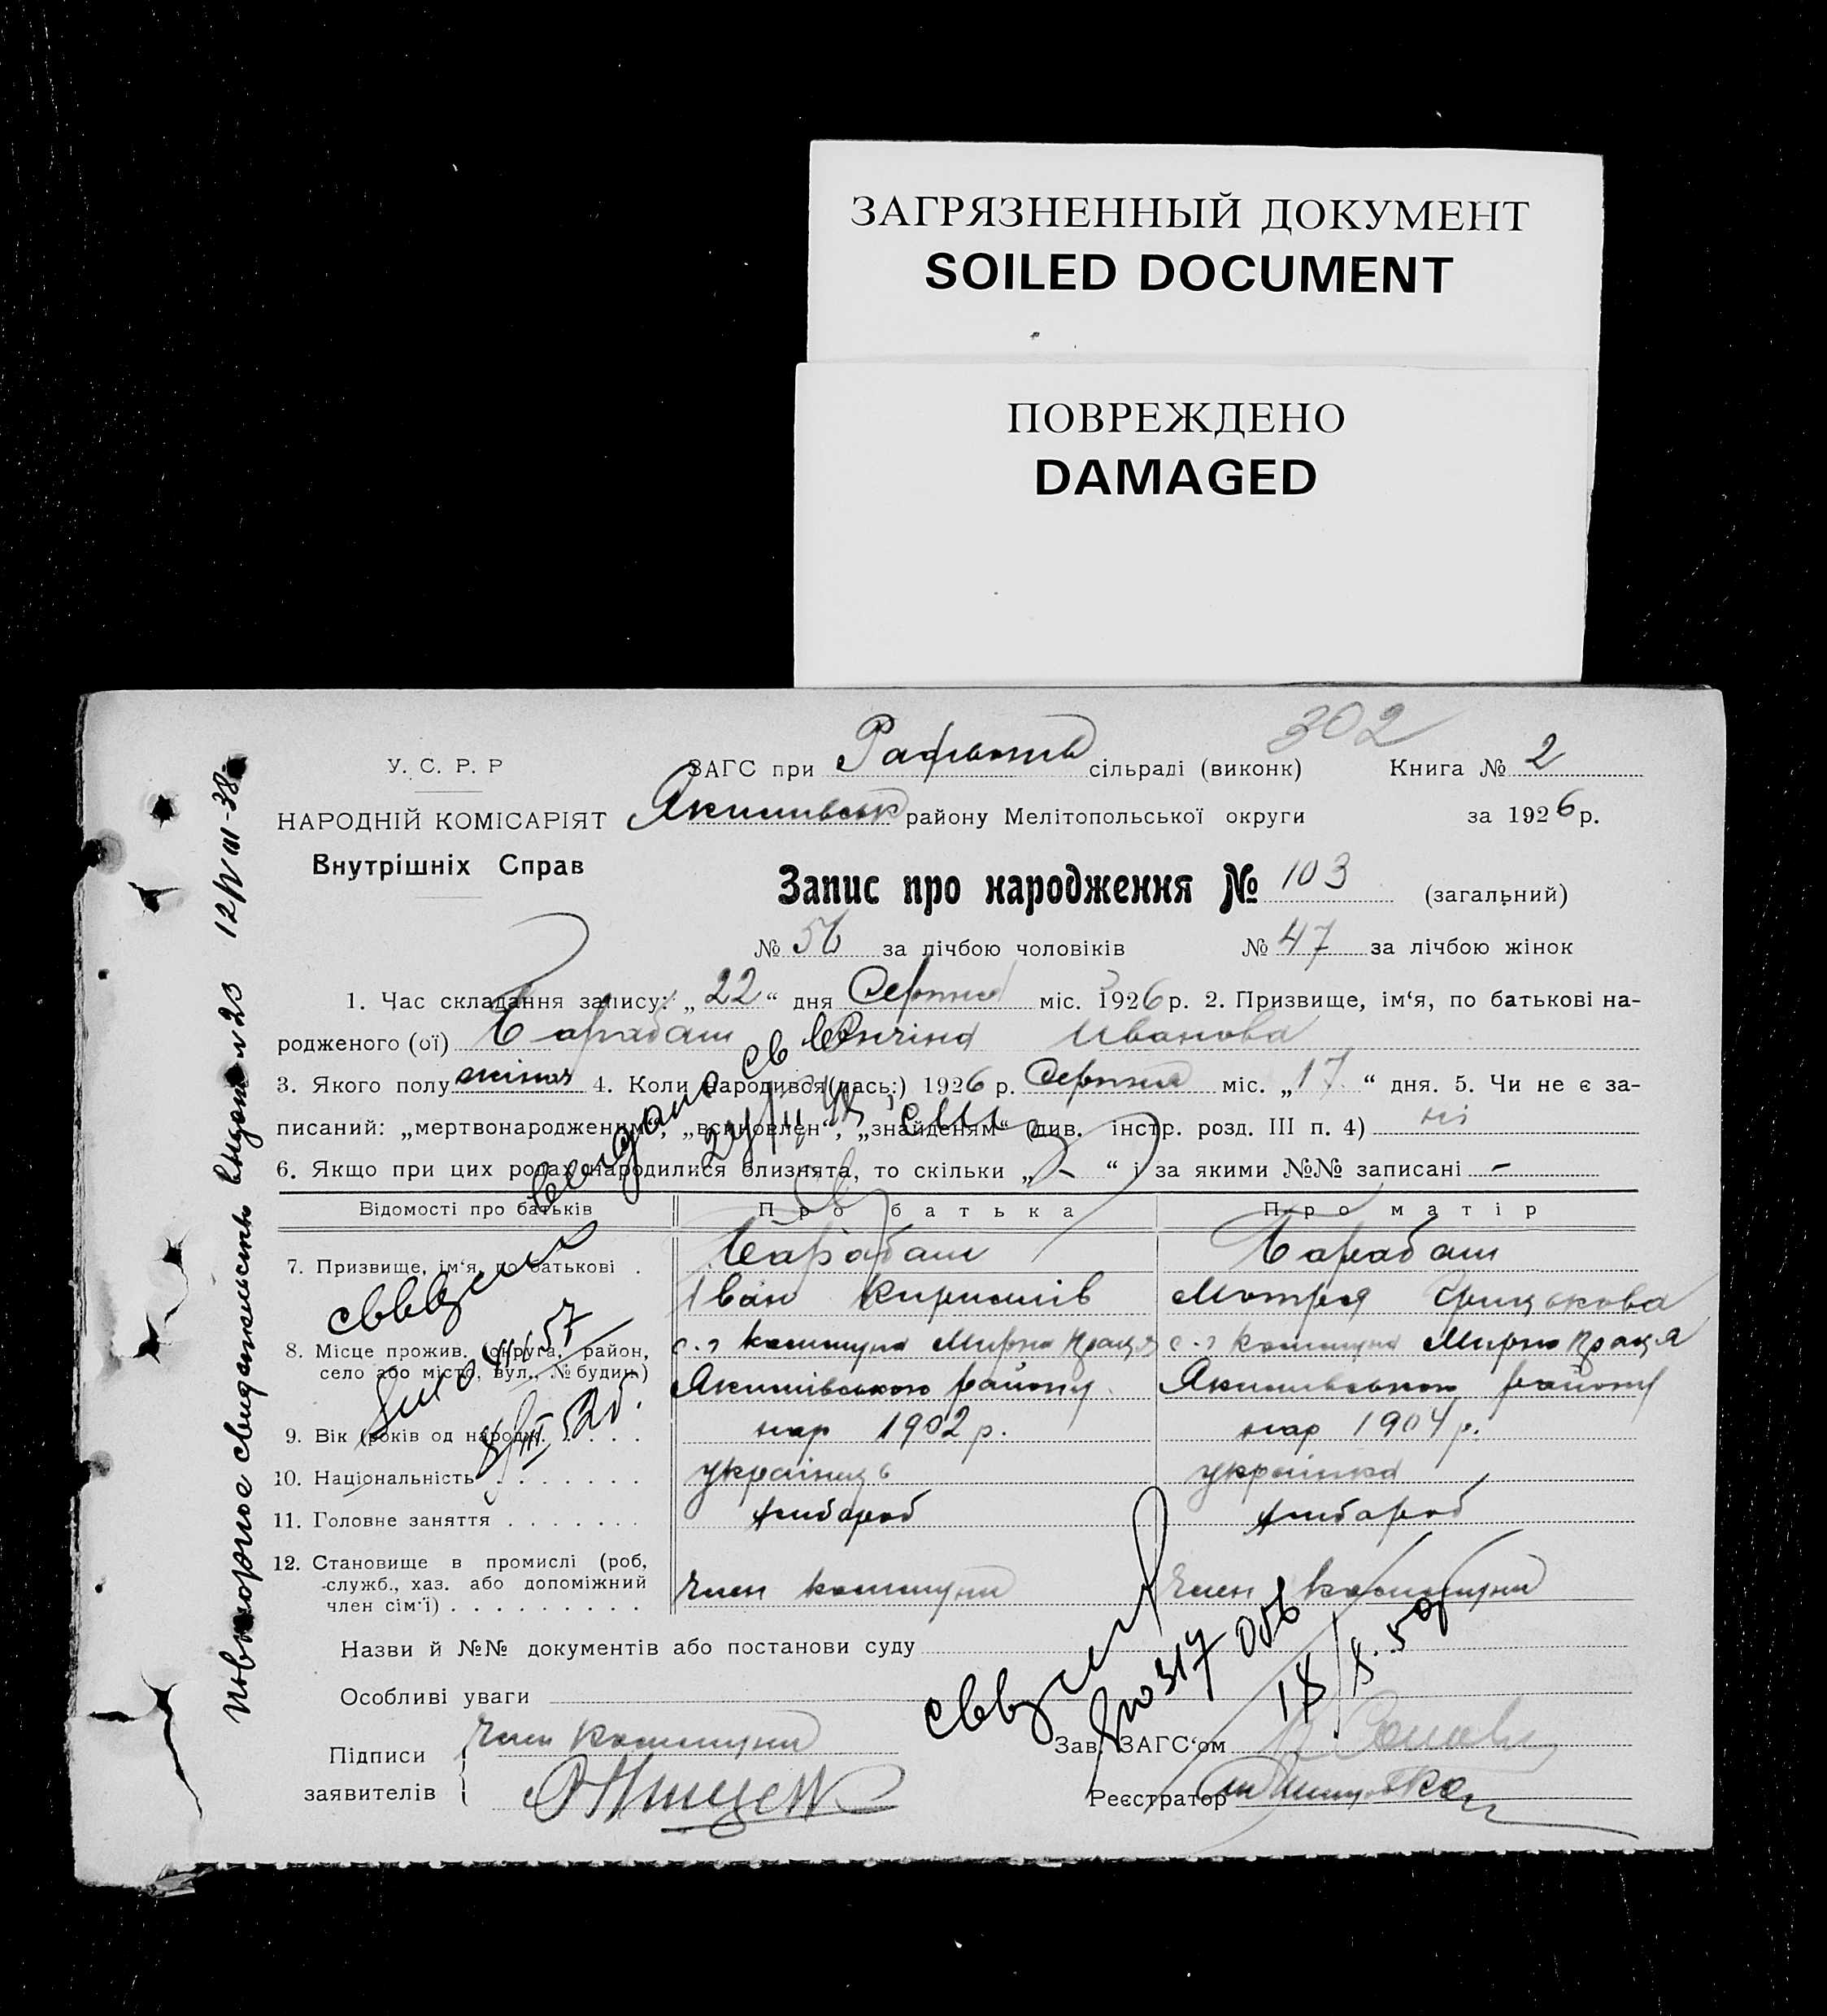 ЗАГРЯЗНЕННЫЙ ДОКУМЕНТ
SOILED DOCUMENT
ПОВРЕЖДЕНО
DAMAGED
302
У. С. Р. Р
НАРОДНІЙ КОМІСАРІЯТ
Внутрішніх Справ
ЗАГС при сільраді (виконк) Книга № 2
району Мелітопольської округи за 1926 р.
Запис про народження № 103 (загальний)
№ 56 за лічбою чоловіків № 47 за лічбою жінок
1. Час складання запису: „22“ дня Серпня міс. 1926 р. 2. Призвище, ім‘я, по батькові на-
родженого (ої) Барабаш Іванова
3. Якого полу жіноч 4. Коли народився(лась:) 1926 р. Серпня міс. „17“ дня. 5. Чи не є за-
писаний: „мертвонародженим“, „всиновлен“, „знайденям“ (див. інстр. розд. III п. 4) ні
6. Якщо при цих родах народилися близнята, то скільки „-“ і за якими №№ записані -
Відомості про батьків Про батька Про матір
7. Призвище, ім‘я, по батькові . Барабаш Барабаш
Іван Кирилів Мотря Грицькова
8. Місце прожив. (округа, район, с.г комуна Мирна Праця с.г комуна Мирна Праця
село або місто, вул., № будин.) Якимівського району Якимівського району
9. Вік (років од народж. . . . . нар 1902 р. нар 1904 р.
10. Національність . . . . . . . українець українка
11. Головне заняття . . . . . . . хлібороб хлібороб
12. Становище в промислі (роб,
-служб., хаз. або допоміжний
член сім‘ї) . . . . . . . . . член комуни член комуни
Назви й №№ документів або постанови суду
Особливі уваги
Підписи
заявителів
член комуни
Зав. ЗАГС‘ом
Реєстратор
Повторное свидетельство выдано № 23